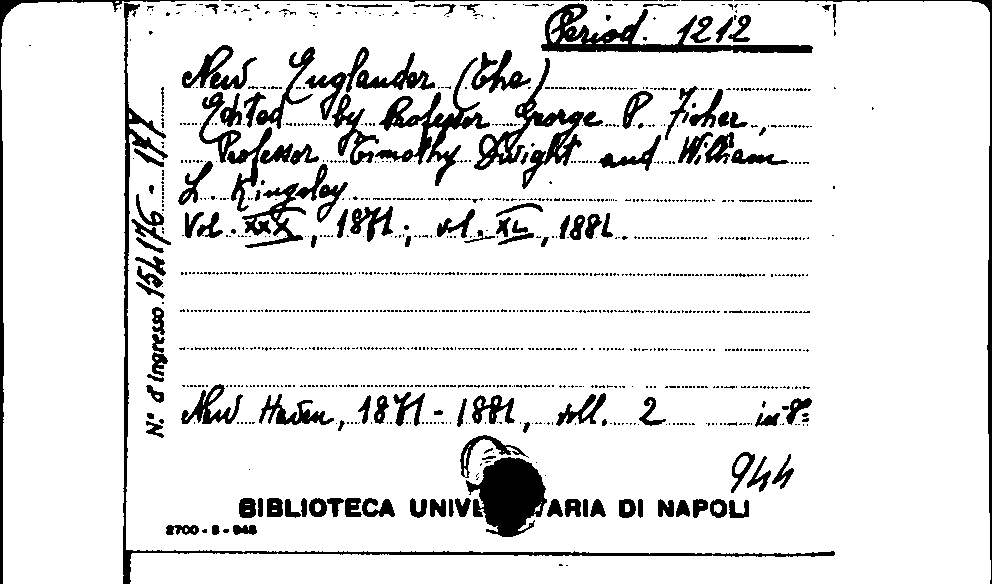 Period. 1212
New Englander (The)
Edited by Professor George P. Fisher,
Professor Timothy Dwight and William
L. Kingsley.
Vol. XXX, 1871; vol. XL, 1881.
New Haven, 1871-1881, voll. 2 in-8º
944
BIBLIOTECA DI NAPOLI
2700-8-948
N.º d'ingresso 154176-177